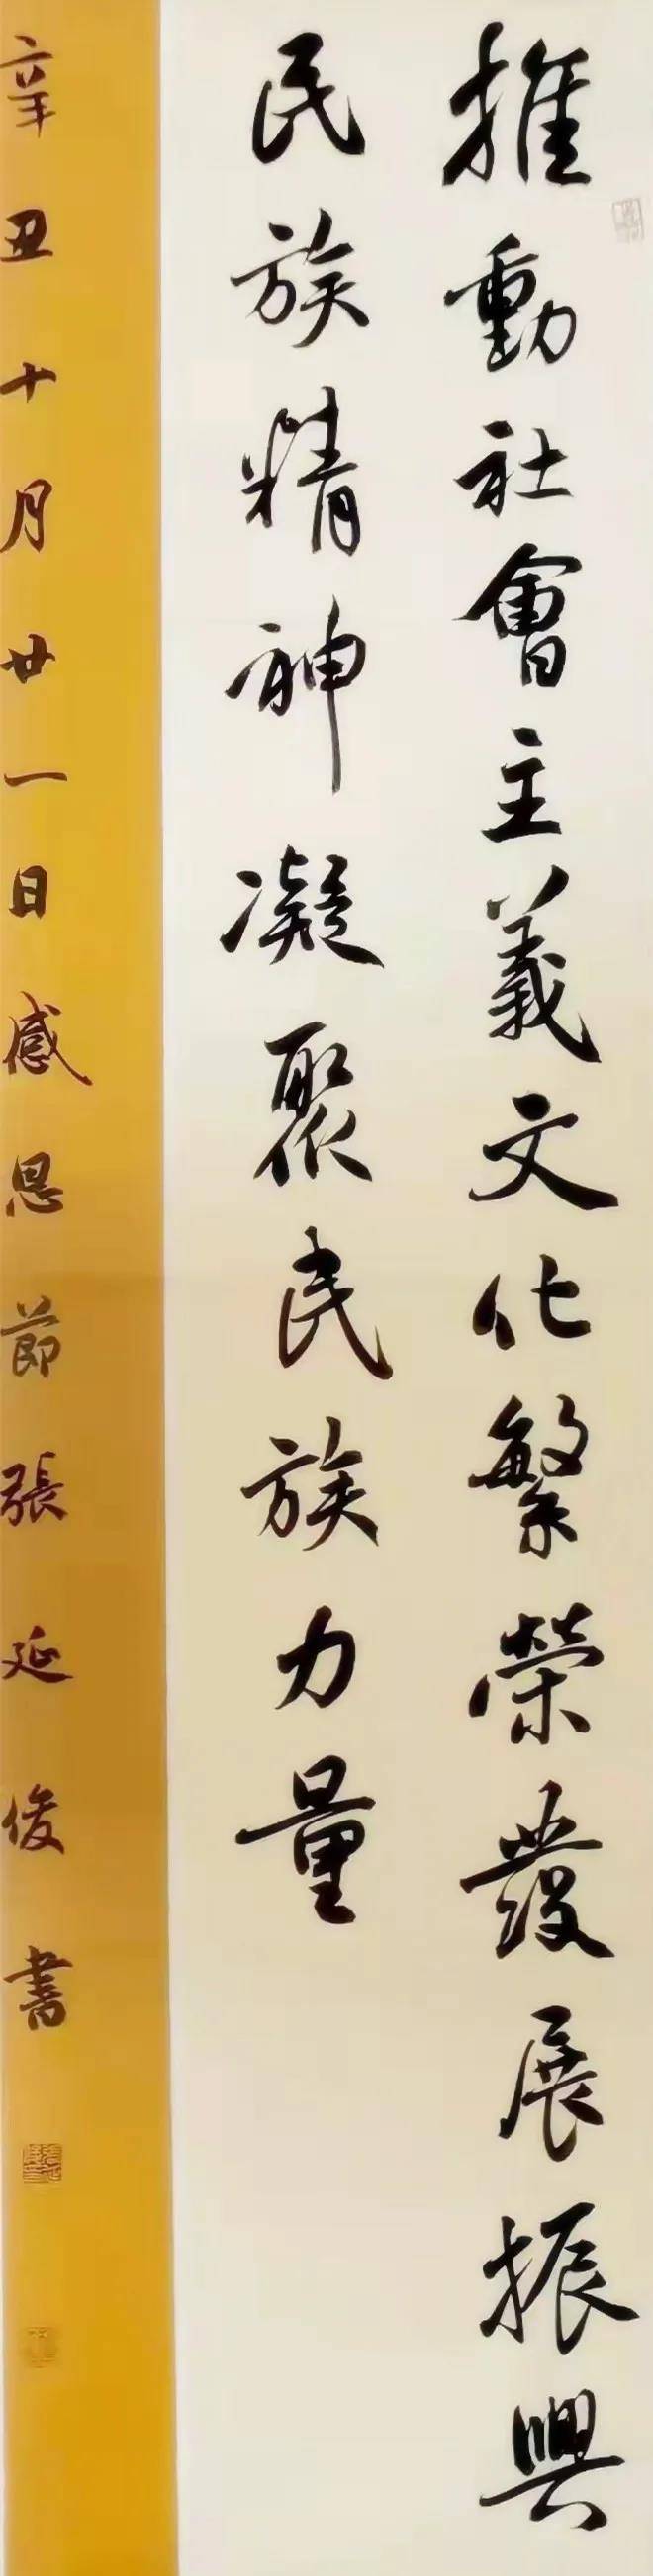 推動社會主義文化繁榮發展振興
民族精神凝聚民族力量
辛丑十月廿一日感恩節張延俊書